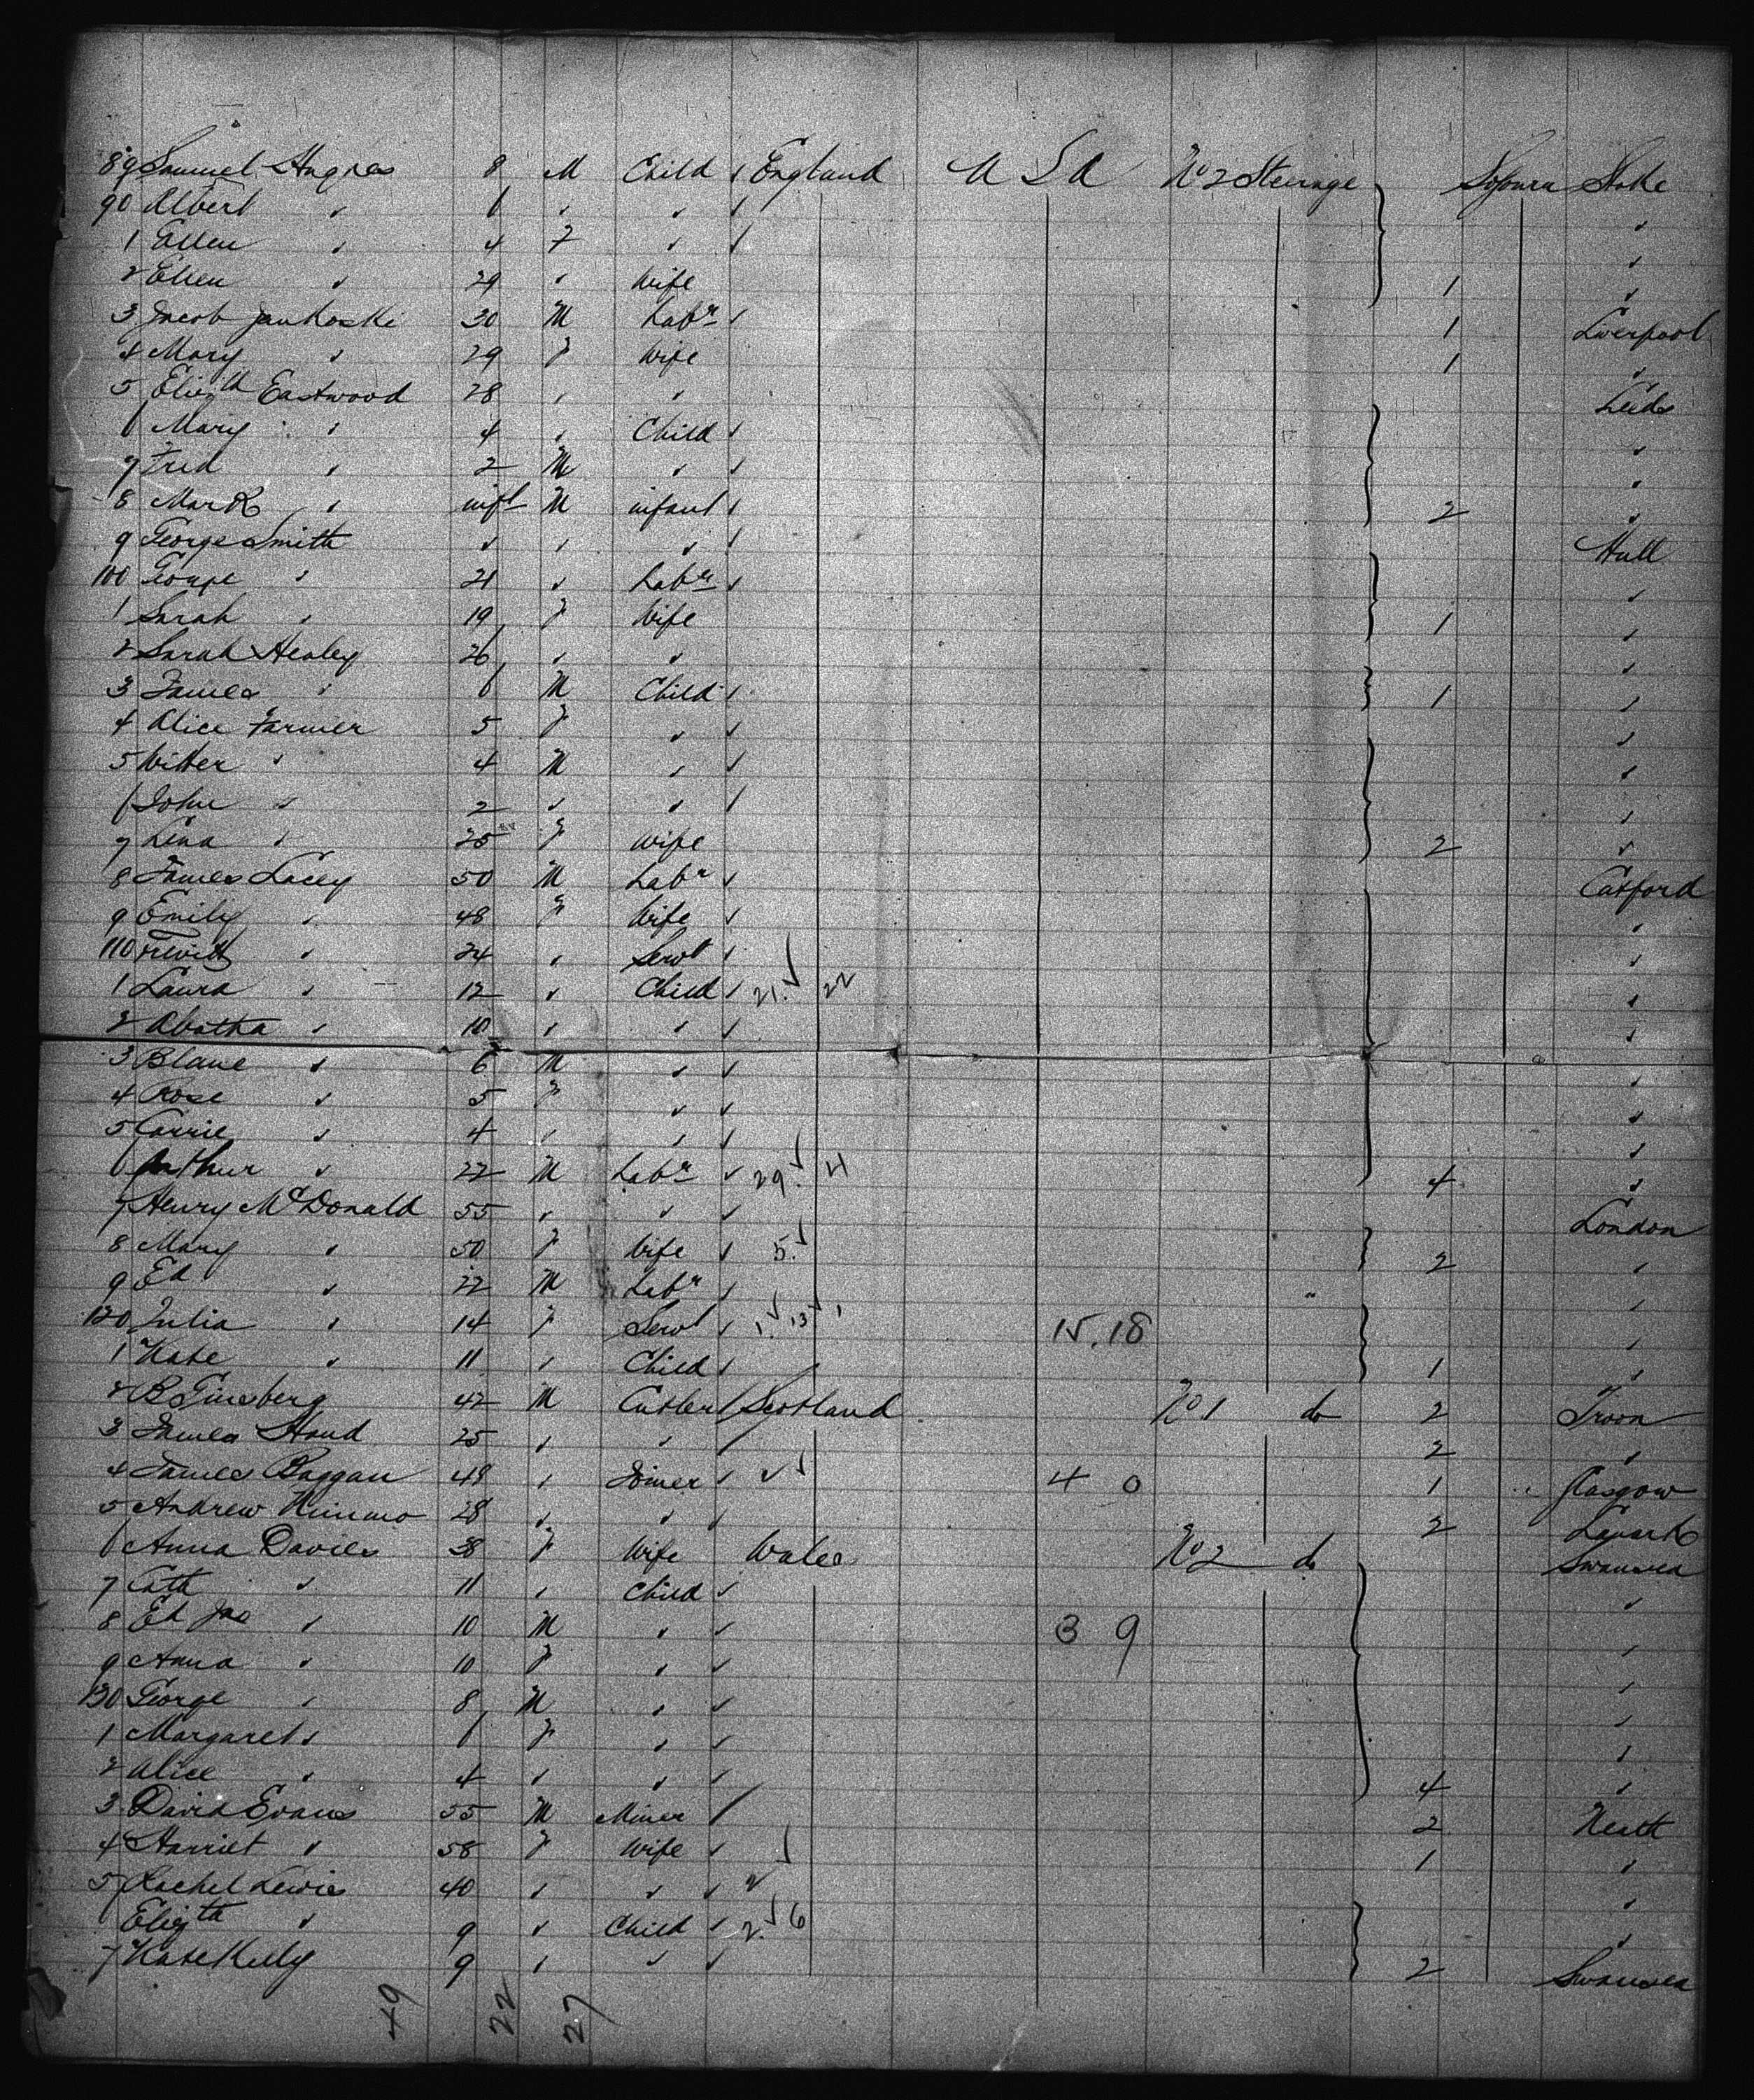 89 Samuel Hughes 8 M Child ✓ England U S A No 2 Steerage Sojourn Stoke
90 Albert " 6 " " ✓ "
1 Ellen " 4 F " ✓ "
2 Ellen " 29 " Wife 1 "
3 Jacob Jankoski 30 M Labr ✓ 1 Liverpool
4 Mary " 29 F Wife 1 "
5 Elizth Eastwood 28 " " Leeds
6 Mary " 4 " Child ✓ "
7 Fred " 2 M " ✓ "
8 Mark " inft M infant ✓ 2 "
9 George Smith " " " ✓ Hull
100 George " 21 " Labr ✓ "
1 Sarah " 19 F Wife 1 "
2 Sarah Healey 26 " " "
3 James " 6 M Child ✓ 1 "
4 Alice Farmer 5 F " ✓ "
5 " 4 M " ✓ "
6 John " 2 " " ✓ "
7 Lena " 25 F Wife 2 "
8 James Lacey 50 M Labr ✓ Catford
9 Emily " 48 F Wife ✓ "
110 " 24 " Servt ✓ "
1 Laura " 12 " Child ✓ 21 ✓ 22 "
2 Abatha " 10 " " ✓ "
3 " 6 M " ✓ "
4 Rose " 5 F " ✓ "
5 Carrie " 4 " " ✓ "
6 Arthur " 22 M Labr ✓ 29 ✓ 4 4 "
7 Henry McDonald 55 " " ✓ London
8 Mary " 50 F Wife ✓ 5 ✓ 2 "
9 Ed " 22 M Labr ✓ "
120 Julia " 14 F Servt ✓ 1 ✓ 13 ✓ 15.18 "
1 Kate " 11 " Child ✓ 1 "
2 B Ginsberg 42 M Cutler ✓ Scotland No 1 do 2 Troon
3 James Hand 25 " " ✓ 2 "
4 James Baggan 49 " Joiner ✓ ✓ ✓ 4 0 1 Glasgow
5 Andrew Nimmo 28 " " ✓ 2 Lanark
6 Anna Davies 38 F Wife Wales No 2 do Swansea
7 Cath " 11 " Child ✓ "
8 Ed Jas " 10 M " ✓ 3 9 "
9 Anna " 10 F " ✓ "
130 George " 8 M " ✓ "
1 Margaret " 6 F " ✓ "
2 Alice " 4 " " ✓ 4 "
3 David Evans 55 M Miner ✓ 2 Neath
4 Harriet " 58 F Wife ✓ ✓ 1 "
5 Rachel Lewis 40 " " ✓ 2 "
6 Elizth " 9 " Child ✓ 2 ✓ 6 "
7 Kate Kelly 9 " " ✓ 2 Swansea
49 22 27